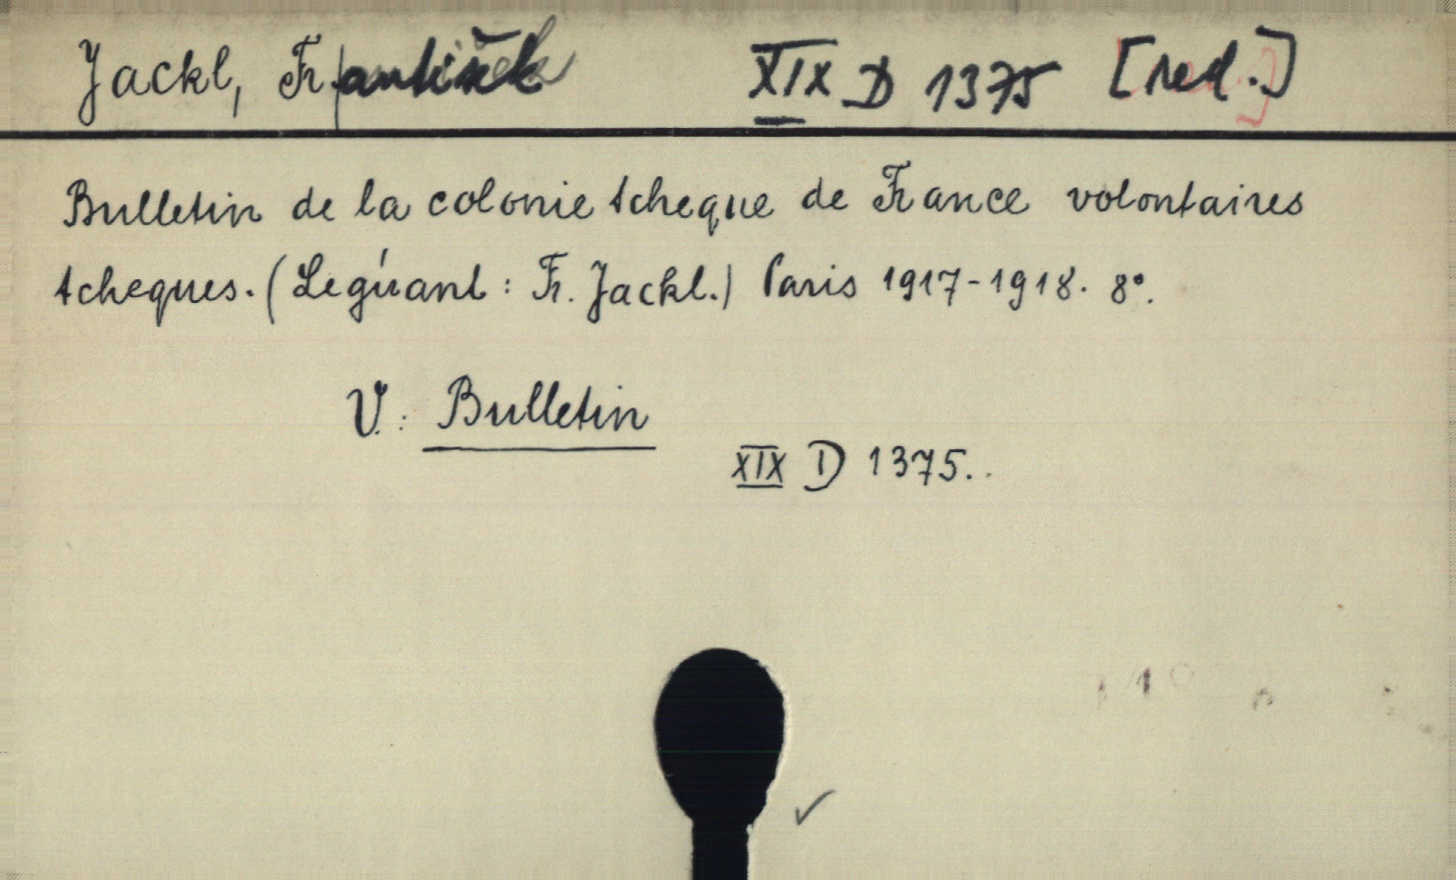 Jackl, František XIX D 1375 [red.]
Bulletin de la colonie tcheque de France volontaires
tcheques. (Legérant: Fr. Jackl.) Paris 1917-1918. 8°.
V.: Bulletin
XIX D 1375.